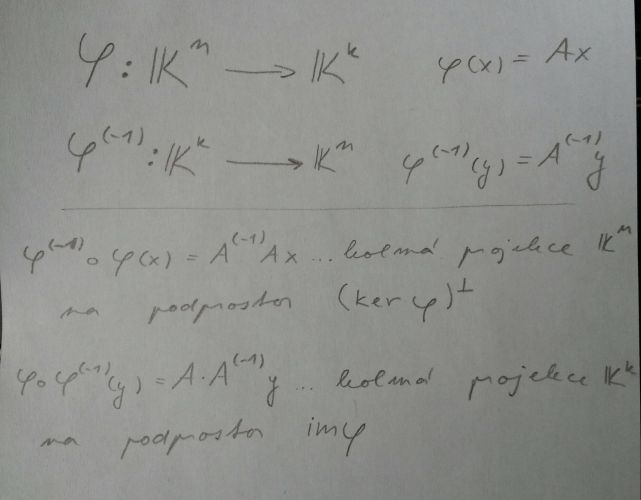 φ : 𝕂ⁿ ⟶ 𝕂ᵏ φ(x) = Ax
φ⁽⁻¹⁾ : 𝕂ᵏ ⟶ 𝕂ⁿ φ⁽⁻¹⁾(y) = A⁽⁻¹⁾y
φ⁽⁻¹⁾ ∘ φ(x) = A⁽⁻¹⁾Ax ... kolmá projekce 𝕂ⁿ
na podprostor (ker φ)⊥
φ∘φ⁽⁻¹⁾(y) = A·A⁽⁻¹⁾y ... kolmá projekce 𝕂ᵏ
na podprostor imφ